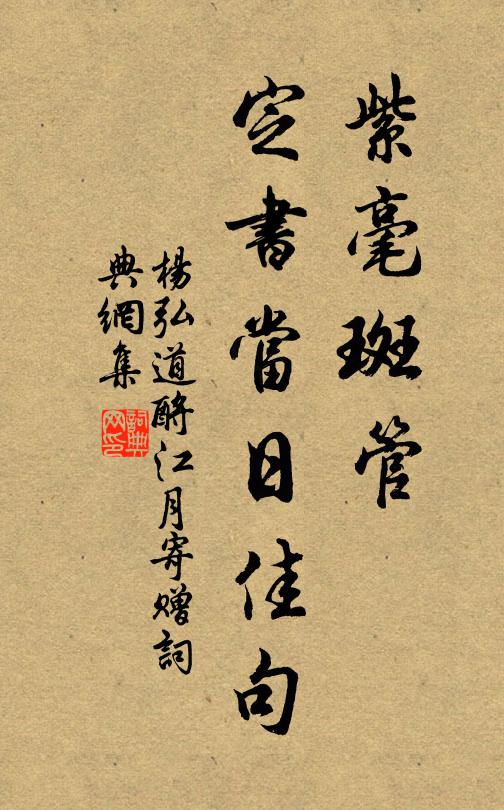 紫毫斑管
定書當日佳句
楊弘道酹江月寄贈詞
典網集
詞典
网印